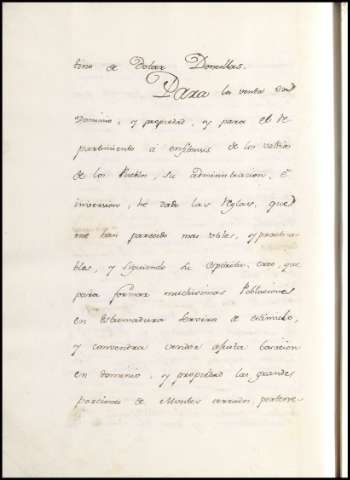 tino de Dotar Doncellas.
Para la venta del
Dominio, y propiedad, y para el Re
partimiento a enfiteusis de los valdíos
de los Pueblos, su administracion, é
inversion, hé dado las Reglas, que
me han parecido mas utiles, y practica
bles, y siguiendo su espiritu, creo, que
para formar muchisimas Poblaciones
en Estremadura serviria de estimulo,
y convendra vender a justa tasacion
en dominio, y propiedad las grandes
porciones de Montes cerrados pertene-